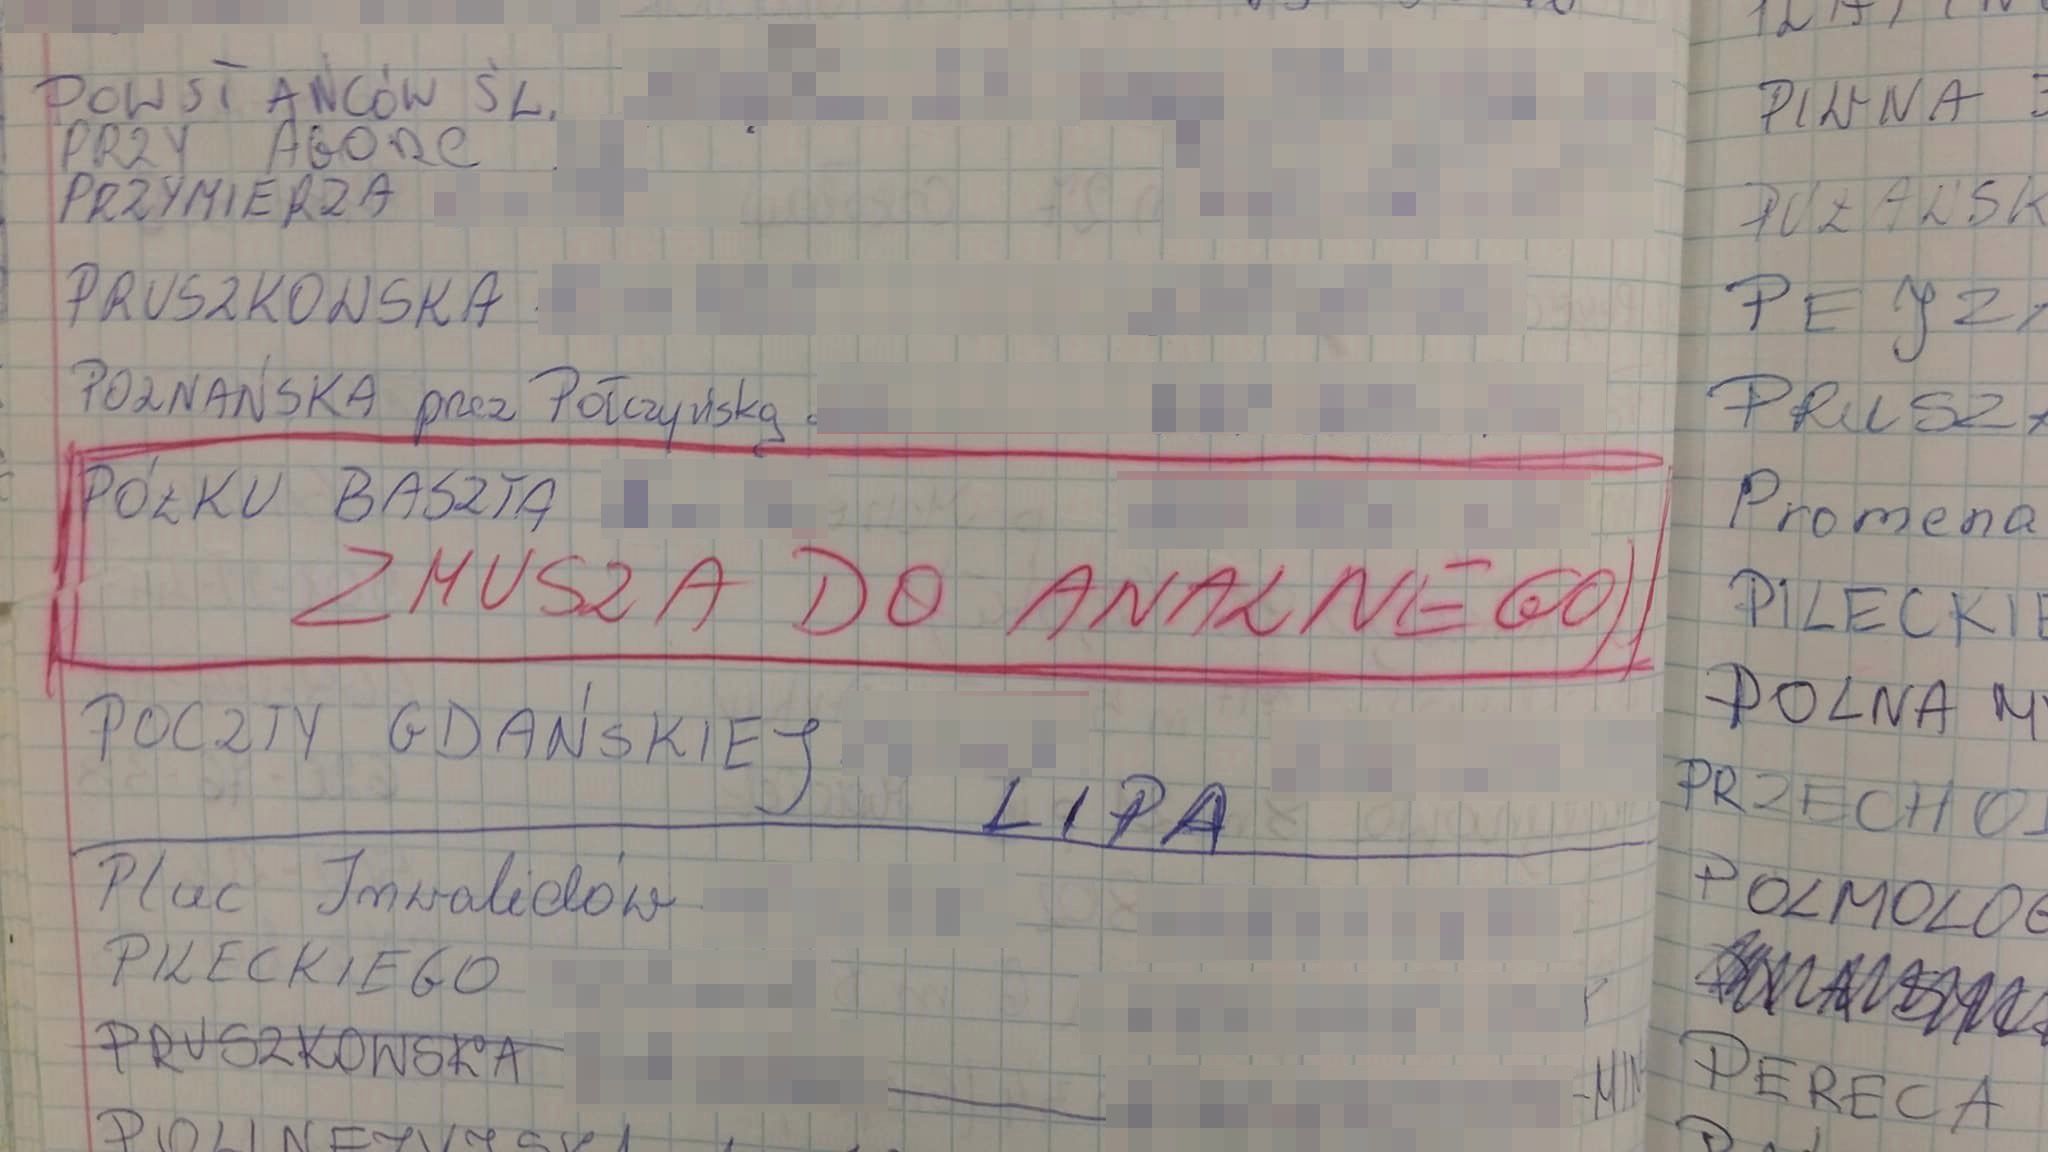 POWSTAŃCÓW ŚL.
PRZY AGORZE
PRZYMIERZA
PRUSZKOWSKA
POZNAŃSKA przez Połczyńską
PÓŁKU BASZTA
ZMUSZA DO ANALNEGO!!
POCZTY GDAŃSKIEJ
LIPA
Plac Inwalidów
PILECKIEGO
PRUSZKOWSKA
PILNA
PEJZA
PRUSZK
Promena
PILECKIE
POLNA MY
PRZECHOD
POLMOLOG
PERECA